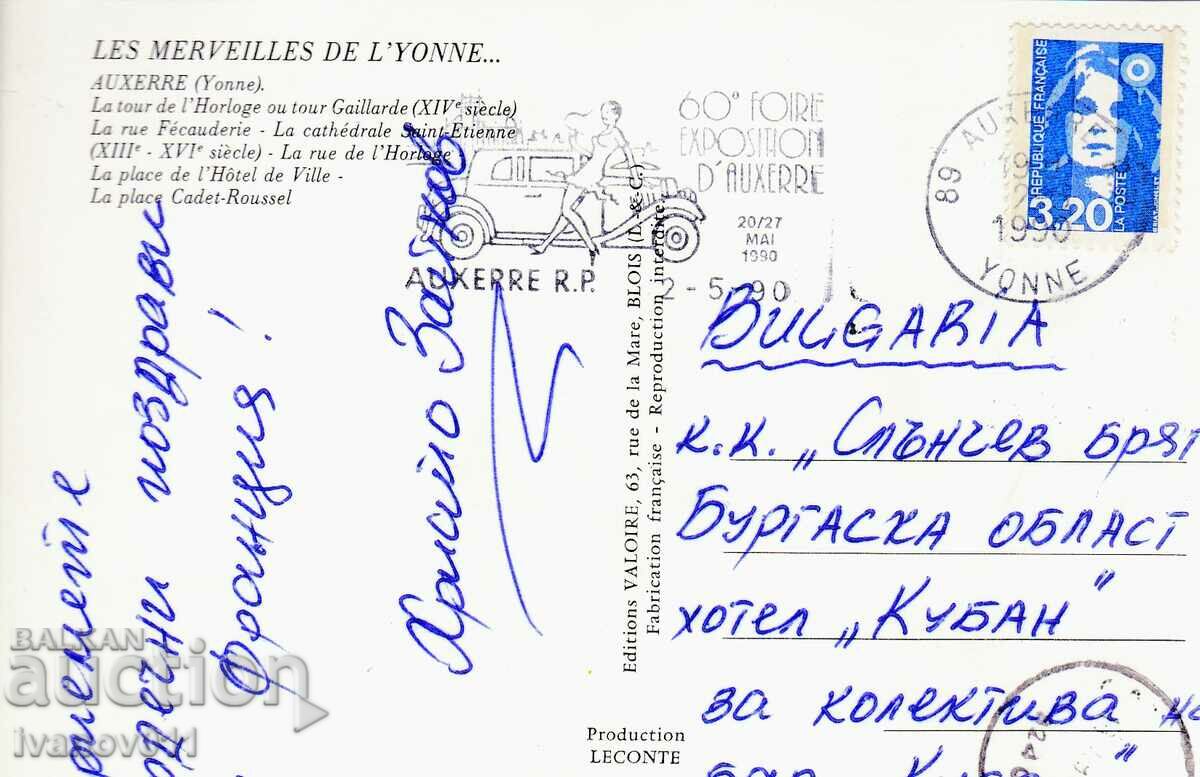 LES MERVEILLES DE L'YONNE...
AUXERRE (Yonne).
La tour de l'Horloge ou tour Gaillarde (XIVe siècle)
La rue Fécauderie - La cathédrale Saint-Etienne
(XIIIe - XVIe siècle) - La rue de l'Horloge
La place de l'Hôtel de Ville -
La place Cadet-Roussel
60e FOIRE
EXPOSITION
D'AUXERRE
20/27
MAI
1990
AUXERRE R.P.
2-5-90
89 AUXERRE
1990
YONNE
REPUBLIQUE FRANÇAISE
3,20
LA POSTE
поздрави
Франция!
Христо
Editions VALOIRE, 63, rue de la Mare, BLOIS (L.-&-C.)
Fabrication française - Reproduction interdite.
BULGARIA
к.к. „Слънчев бряг
Бургаска област
хотел „Кубан"
за колектива на
бар
Production
LECONTE
BALKAN
auction
ivanov011